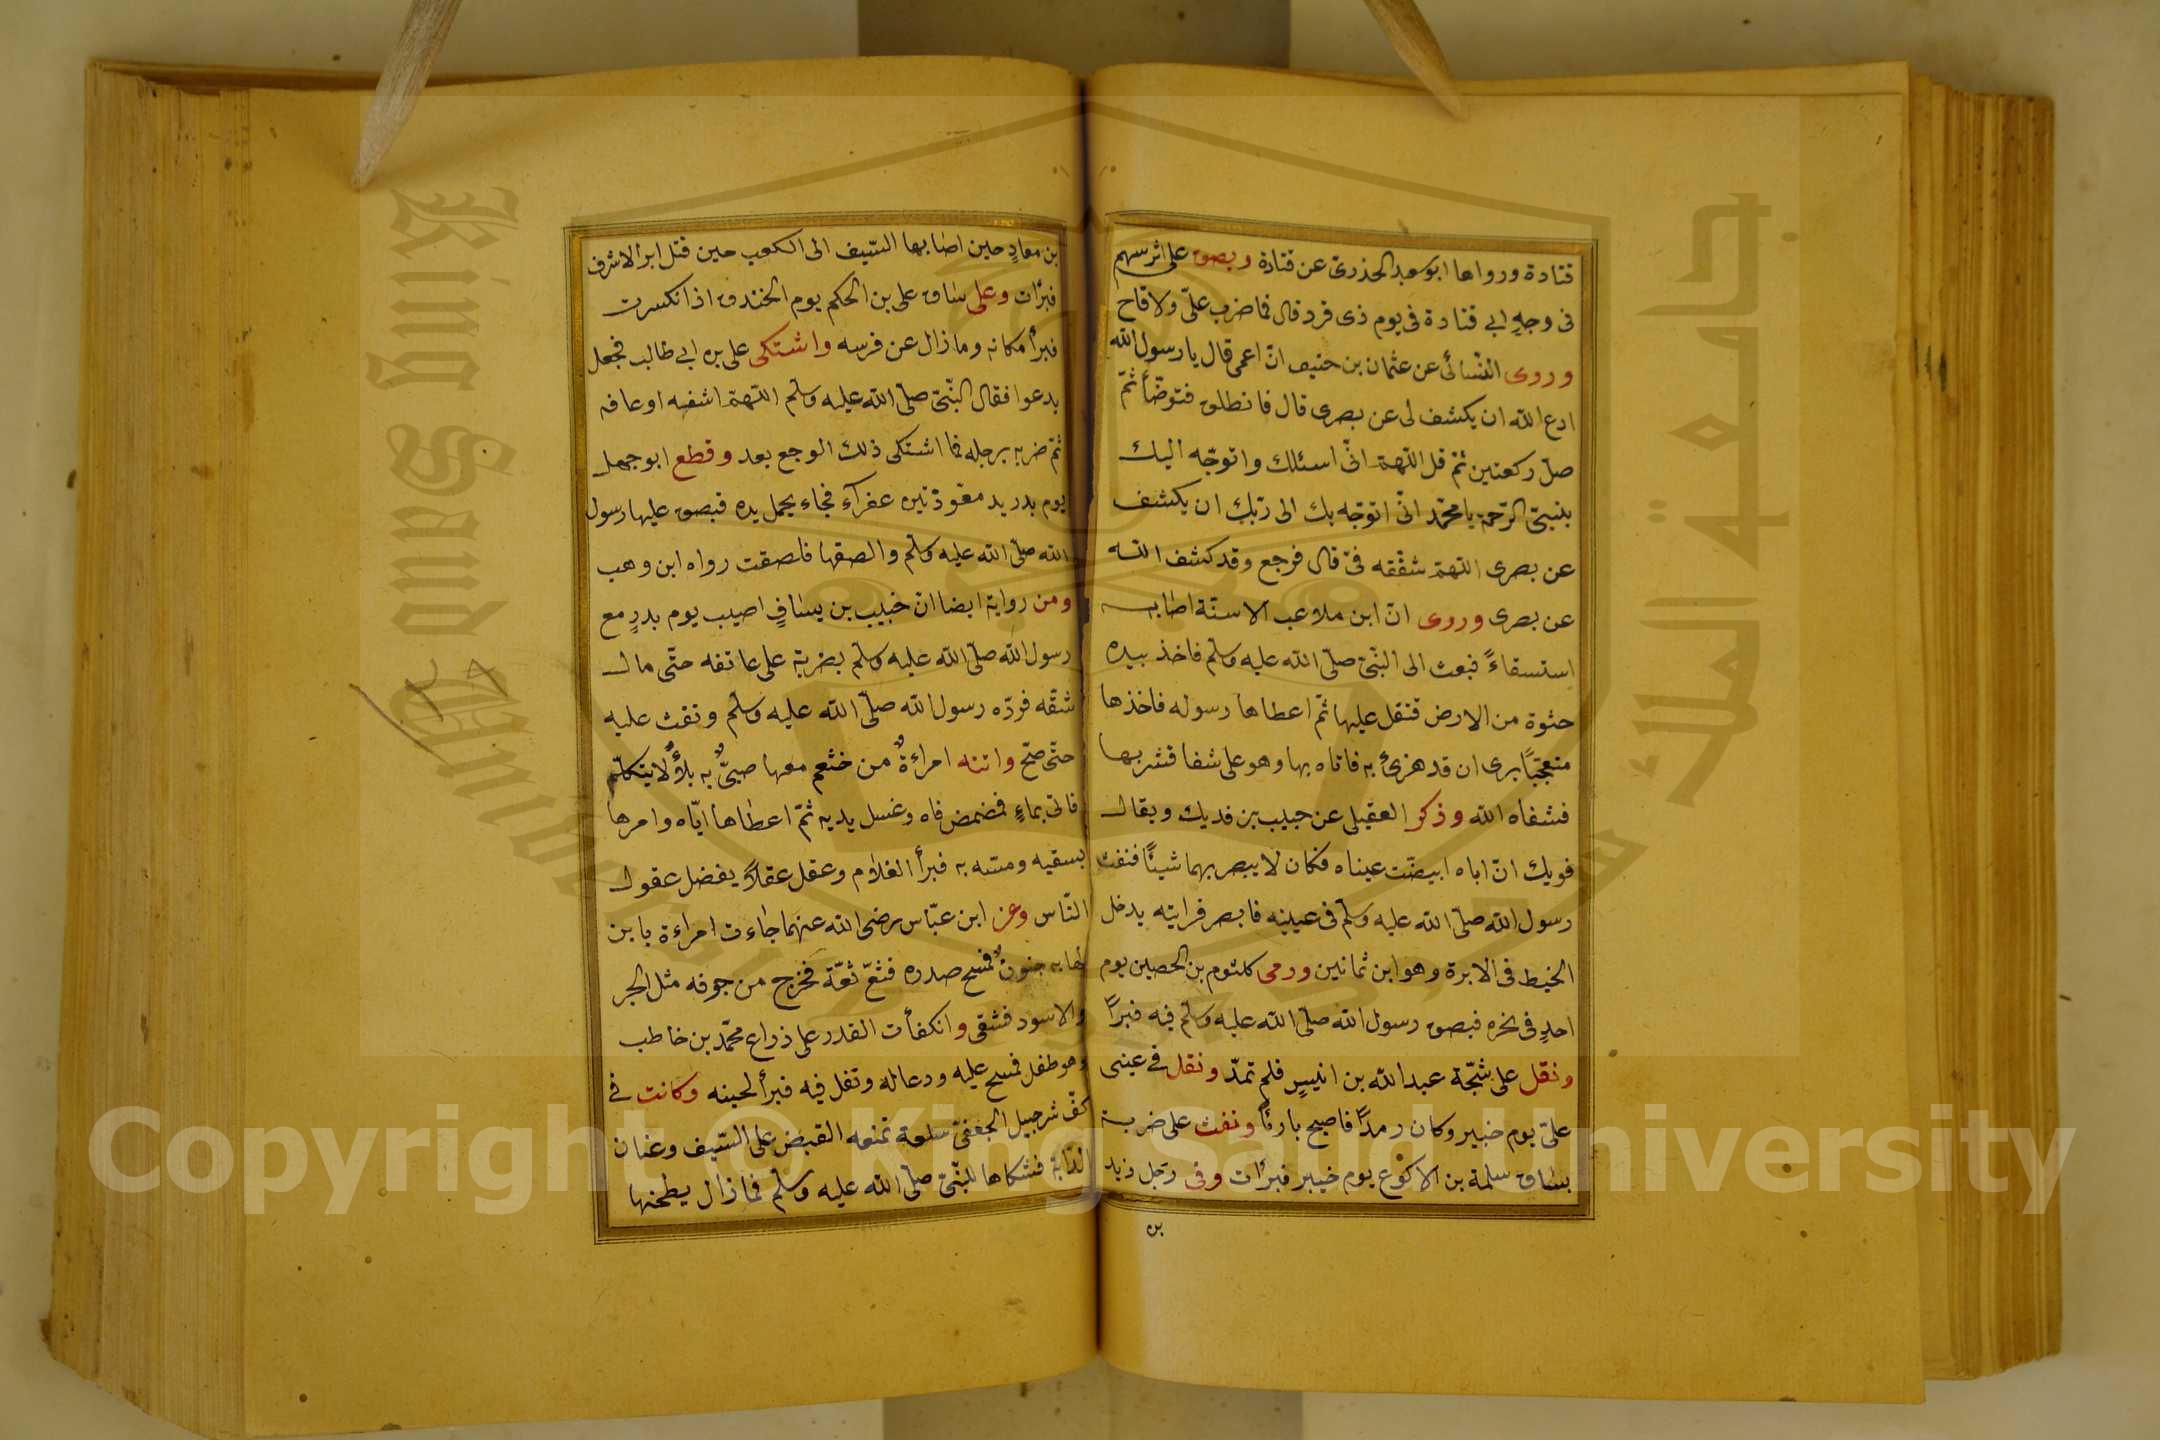 قتادة ورواها ابو سعيد الخذرى عن قتادة وبصق على اثر سهم
فى وجه ابى قتادة فى يوم ذى قرد قال فما ضرب علىّ ولا قاح
وروى النّسائى عن عثمان بن حنيف انّ اعمى قال يا رسول الله
ادع الله ان يكشف لى عن بصرى قال فانطلق فتوضّأ ثمّ
صلّ ركعتين ثمّ قل اللّهمّ انّى اسئلك واتوجّه اليك
بنبيّ الرّحمة يا محمّد انّى اتوجّه بك الى ربّك ان يكشف
عن بصرى اللّهمّ شفّعه فىّ قال فرجع وقد كشف الله
عن بصرى وروى انّ ابن ملاعب الاسنّة اصابه
استسقاءً فبعث الى النّبىّ صلّى الله عليه وسلّم فاخذ بيده
حثوة من الارض فتفل عليها ثمّ اعطاها رسوله فاخذها
متعجّبًا يرى ان قد هزئ به فاتاه بها وهو على شفا فشربها
فشفاه الله وذكر العقيلى عن حبيب بن فديك ويقال
فويك انّ اباه ابيضّت عيناه فكان لا يبصر بهما شيئًا فنفث
رسول الله صلّى الله عليه وسلّم فى عينيه فابصر فرايته يدخل
الخيط فى الابرة وهو ابن ثمانين ورمى كلثوم بن الحصين يوم
احدٍ فى نحره فبصق رسول الله صلّى الله عليه وسلّم فيه فبرأ
ونقل على شجّة عبد الله بن انيسٍ فلم تمدّ ونقل فى عينى
علىّ يوم خيبر وكان رمدًا فاصبح بارئًا ونفث على ضربة
بساق سلمة بن الاكوع يوم خيبر فبرأت وفى رجل زيد
بن
بن معاذٍ حين اصابها السّيف الى الكعب حين قتل ابن الاشرف
فبرأت وعلى ساق على بن الحكم يوم الخندق اذ انكسرت
فبرأ مكانه وما زال عن فرسه واشتكى على بن ابى طالب فجعل
يدعوا فقال النّبىّ صلّى الله عليه وسلّم اللّهمّ اشفه او عافه
ثمّ ضربه برجله فما اشتكى ذلك الوجع بعد وقطع ابو جهل
يوم بدر يد معوّذ بن عفرآء فجاء يحمل يده فبصق عليها رسول
الله صلّى الله عليه وسلّم والصقها فلصقت رواه ابن وهب
ومن روايه ايضا انّ خبيب بن يسافٍ اصيب يوم بدرٍ مع
رسول الله صلّى الله عليه وسلّم بضربة على عاتقه حتّى مال
شقّه فردّه رسول الله صلّى الله عليه وسلّم ونفث عليه
حتّى صحّ واتته امراءةٌ من خثعم معها صبىٌّ به بلاٌ لا يتكلّم
فاتى بماءٍ فمضمض فاه وغسل يديه ثمّ اعطاها ايّاه وامرها
بسقيه ومسّه به فبرأ الغلام وعقل عقلاً يفضل عقول
النّاس وعن ابن عبّاس رضى الله عنهما جاءت امراءة بابن
لها به جنونٌ فمسح صدره فثعّ ثعّة فخرج من جوفه مثل الجر
والاسود فشقى وانكفأت القدر على ذراع محمّد بن خاطب
وهو طفل فمسح عليه ودعا له وتفل فيه فبرأ لحينه وكانت فى
كفّ شرجبيل الجعفىّ سلعة تمنعه القبض على السّيف وعنان
الدّابّة فشكاها للنّبىّ صلّى الله عليه وسلّم فما زال يطحنها
جامعة الملك سعود
King Saud University
Copyright © King Saud University